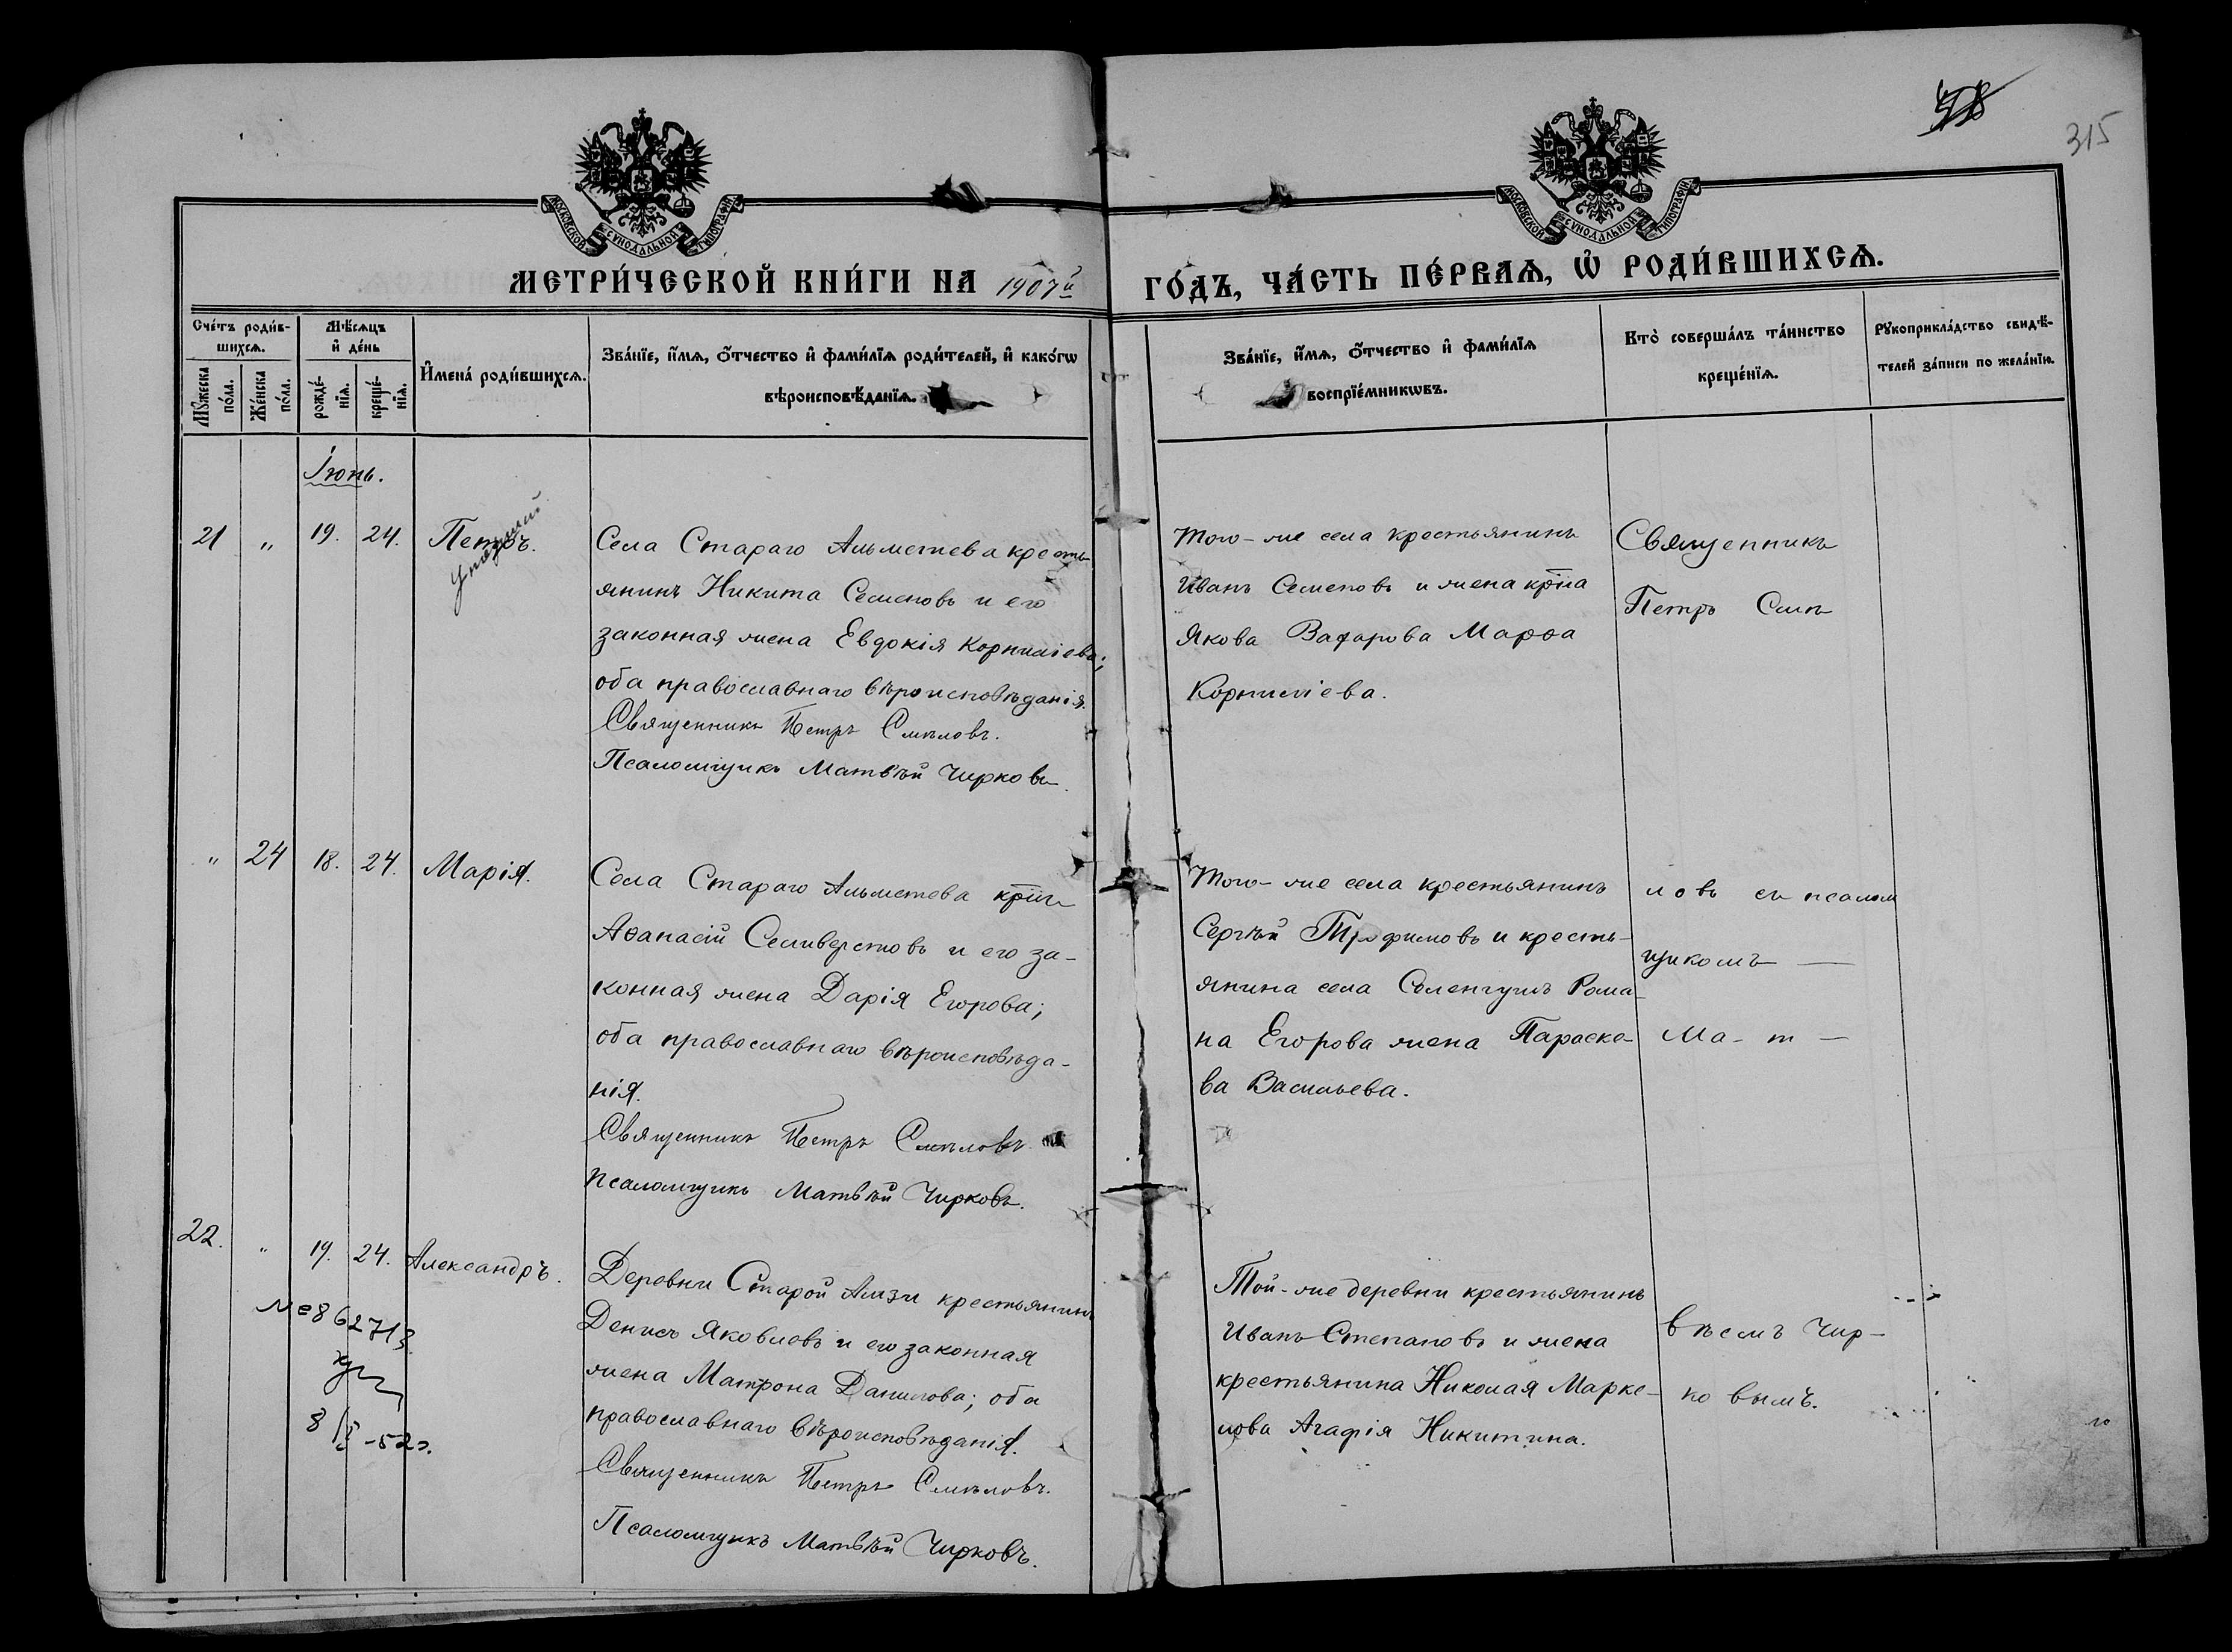 58
315
МОСКОВСКОЙ СУНОДАЛЬНОЙ ТИПОГРАФІИ
МОСКОВСКОЙ СУНОДАЛЬНОЙ ТИПОГРАФІИ
МЕТРИ́ЧЕСКОЙ КНИ́ГИ НА 1907й ГО́ДЪ, ЧА́СТЬ ПЕ́РВАѦ, Ѡ҆ РОДИ́ВШИХСѦ.
Сче́тъ роди́в-
шихсѧ.
Мꙋ́жеска по́ла.
Же́нска по́ла.
Мѣ́сѧцъ
и҆ де́нь
рожде́-
нїѧ.
креще́-
нїѧ.
И҆мена̀ роди́вшихсѧ.
Зва́нїе, и҆́мѧ, ѻ҆́тчество и҆ фами́лїѧ роди́телей, и҆ како́гѡ
вѣроисповѣ́данїѧ.
Зва́нїе, и҆́мѧ, ѻ҆́тчество и҆ фами́лїѧ
воспрїе́мникѡвъ.
Кто̀ соверша́лъ та́инство
креще́нїѧ.
Рꙋкоприкла́дство свидѣ́-
телей за́писи по жела́нїю.
Іюнь.
21 " 19. 24. Петръ.
Села Стараго Альметева кресть
янинъ Никита Семеновъ и его
законная жена Евдокія Корниліева;
оба православнаго вѣроисповѣданія.
Священникъ Петръ Смѣловъ.
Псаломщикъ Матвѣй Чирковъ.
Того-же села крестьянинъ
Иванъ Семеновъ и жена крна
Якова Марѳа
Корниліева.
Священникъ
Петръ Смѣ
" 24 18. 24. Марія.
Села Стараго Альметева крнъ
Аѳанасій Селиверстовъ и его за-
конная жена Дарія Егорова;
оба православнаго вѣроисповѣда-
нія.
Священникъ Петръ Смѣловъ.
Псаломщикъ Матвѣй Чирковъ.
Того-же села крестьянинъ
Сергѣй Трофимовъ и кресть-
янина села Рома-
на Егорова жена Параске-
ва Васильева.
ловъ съ псалом
щикомъ —
Ма-т —
22. " 19. 24. Александръ.
№862713
8/ -52г.
Деревни Старой Амзи крестьянинъ
Денисъ Яковлевъ и его законная
жена Матрона Данилова; оба
православнаго вѣроисповѣданія.
Священникъ Петръ Смѣловъ.
Псаломщикъ Матвѣй Чирковъ.
Той-же деревни крестьянинъ
Иванъ Степановъ и жена
крестьянина Николая Марке-
лова Агафія Никитина.
вѣемъ Чир-
ковымъ.